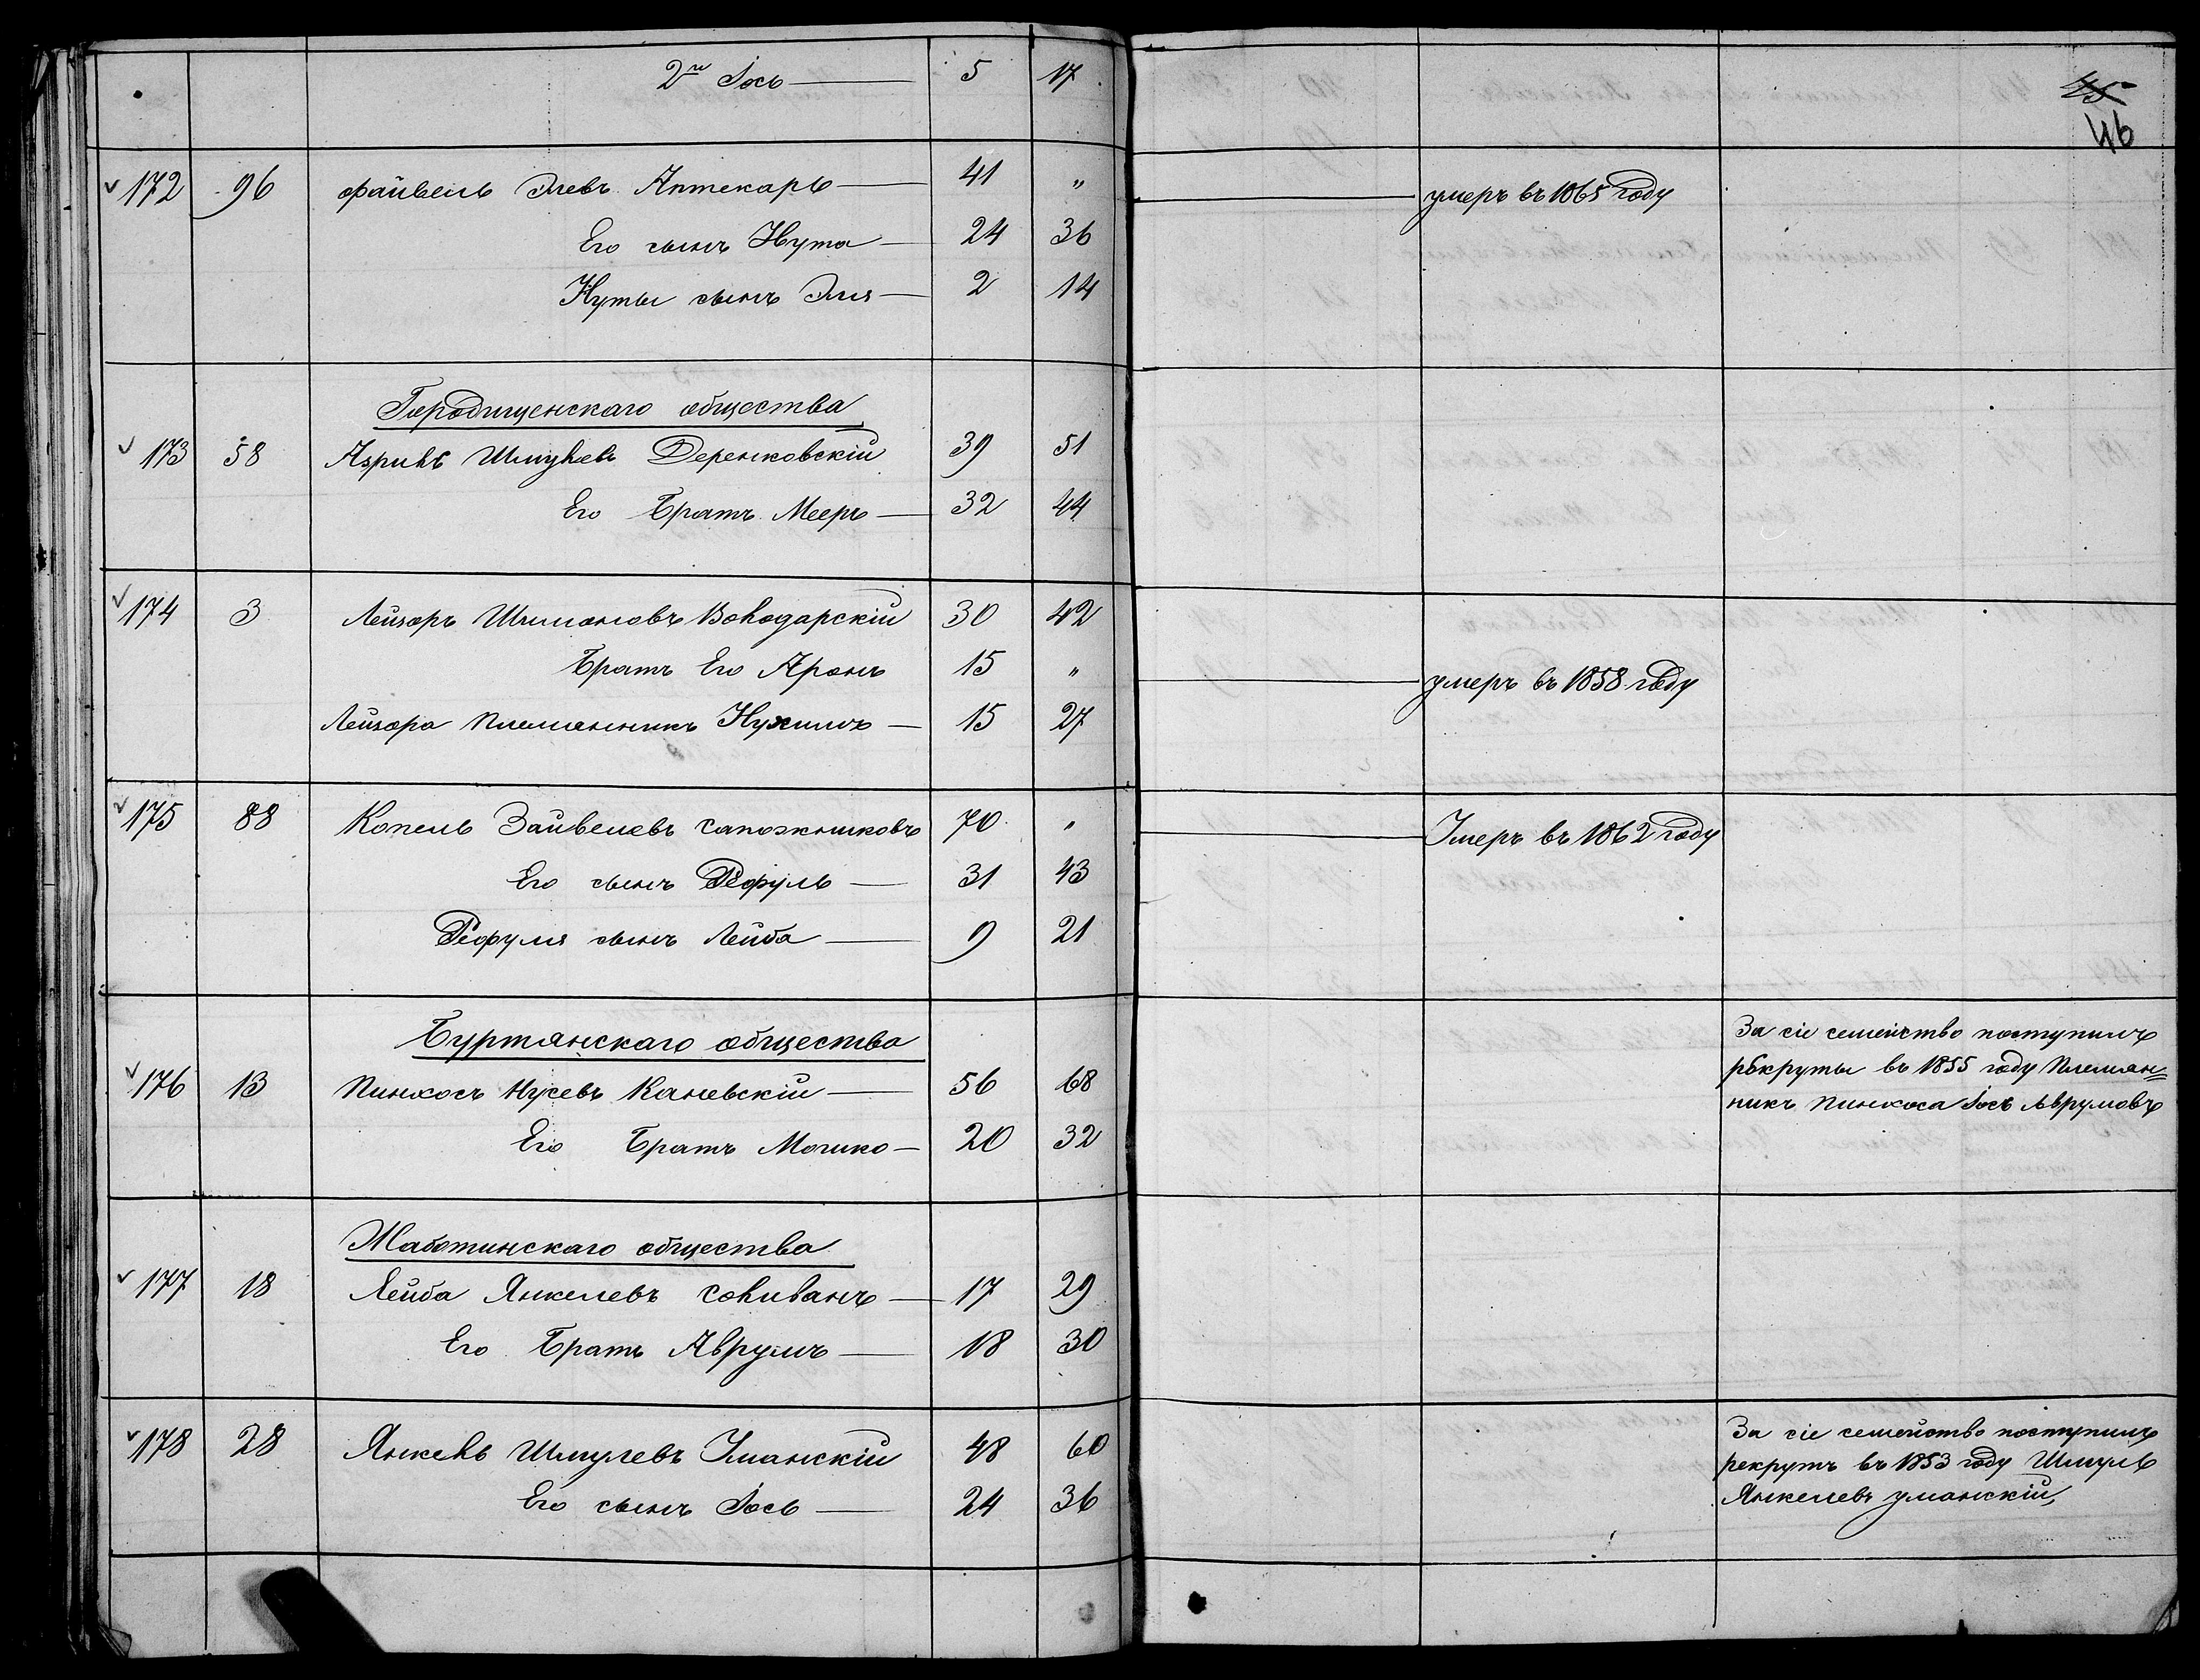 2й Іось 5 17
45
46
172 96 Файвель Элевъ Аптекарь 41 „ умеръ въ 1865 году
Его сынъ Нута 24 36
Нуты сынъ Эля 2 14
Городищенскаго общества
173 58 Азрилъ Шмулевъ Деренковскій 39 51
Его Братъ Мееръ 32 44
174 3 Лейзоръ Шимоновъ Володарскій 30 42
Братъ Его Аронъ 15 „ умеръ въ 1858 году
Лейзора племянникъ Нухимъ 15 27
175 88 Копель Зайвелевъ Сапожниковъ 70 „ Умеръ въ 1862 году
Его сынъ Рефуль 31 43
Рефуля сынъ Лейба 9 21
Буртянскаго общества
176 13 Пинхосъ Нусевъ Каневскій 56 68
Его Братъ Мошко 20 32
За сіе семейство поступилъ
рѣкруты въ 1855 году племян=
никъ Пинхоса Іось Аврумовъ
Жаботинскаго общества
177 18 Лейба Янкелевъ Соливанъ 17 29
Его Братъ Аврумъ 18 30
178 28 Янкель Шмулевъ Уманскій 48 60
Его сынъ Іось 24 36
За сіе семейство поступилъ
рекрутъ въ 1853 году Шмуль
Янкелевъ Уманскій,